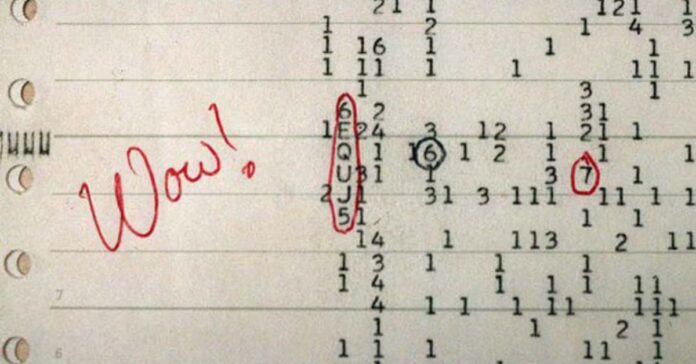 21 1 121 1
1 2 1 4 3
1 16 1 1 1
1 11 1 1 11 1
1 3 1
6 2 31
1E24 3 12 1 21 1
Q 1 16 1 2 1 1 1
U31 1 3 7 1
2J1 31 3 111 11 1 1
51 1 1
Wow!
14 1 113 2 11
1 3 1 1 1
1 4 1 1 1 11
7
4 1 1 1 11 111
1 1 2 1
6
1 1 1 11 1